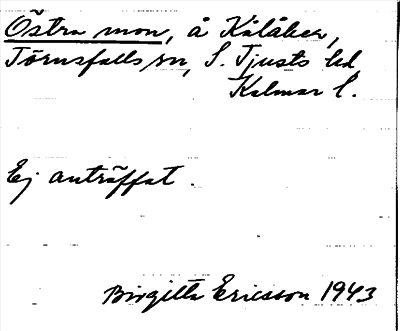 Östra mon, å Kålåker,
Törnsfalls sn, S. Tjusts hd,
Kalmar l.
Ej anträffat.
Birgitta Ericsson 1943